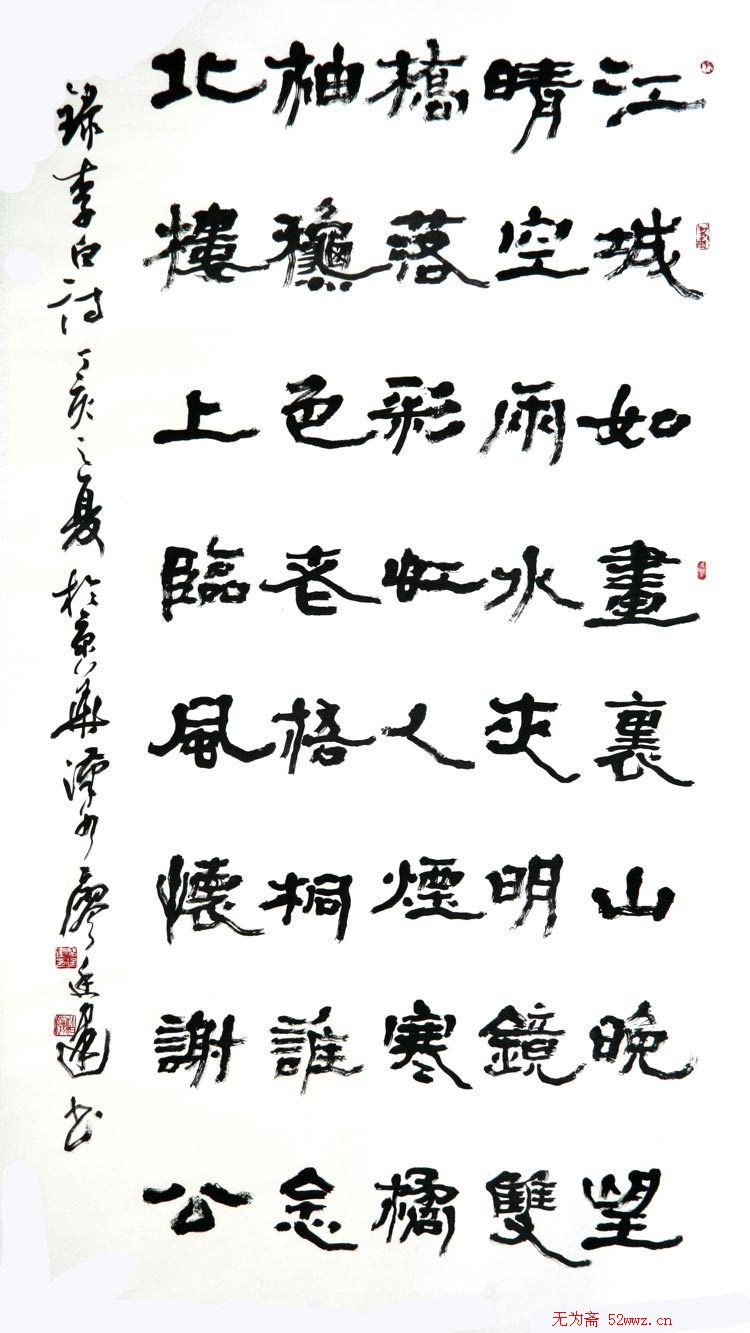 江城如畫裏山晚望
晴空兩水夾明鏡雙
橋落彩虹人煙寒橘
柚龝色老梧桐誰念
北樓上臨風懷謝公
錄李白詩丁亥之夏於京華廖書
无为斋 52wwz.cn